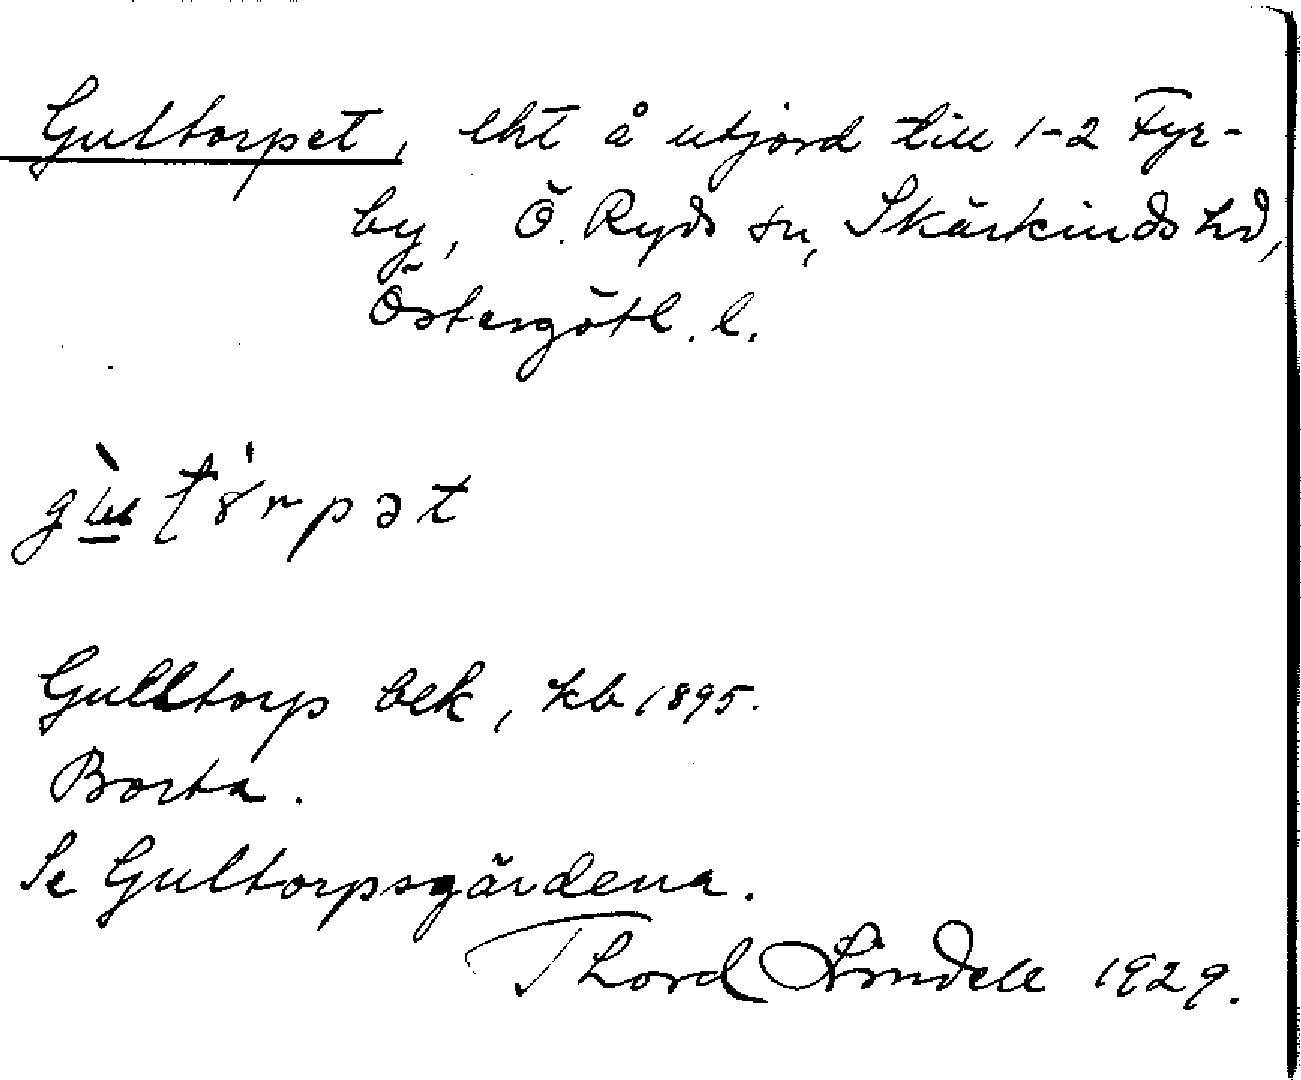 Gultorpet, lht å utjord till 1-2 Fyr-
by, Ö. Ryds sn, Skärkinds hd,
Östergötl. l.
Gulltorp bek, kb 1895.
Borta.
Se Gultorpsgärdena.
Thord Lindell 1929.